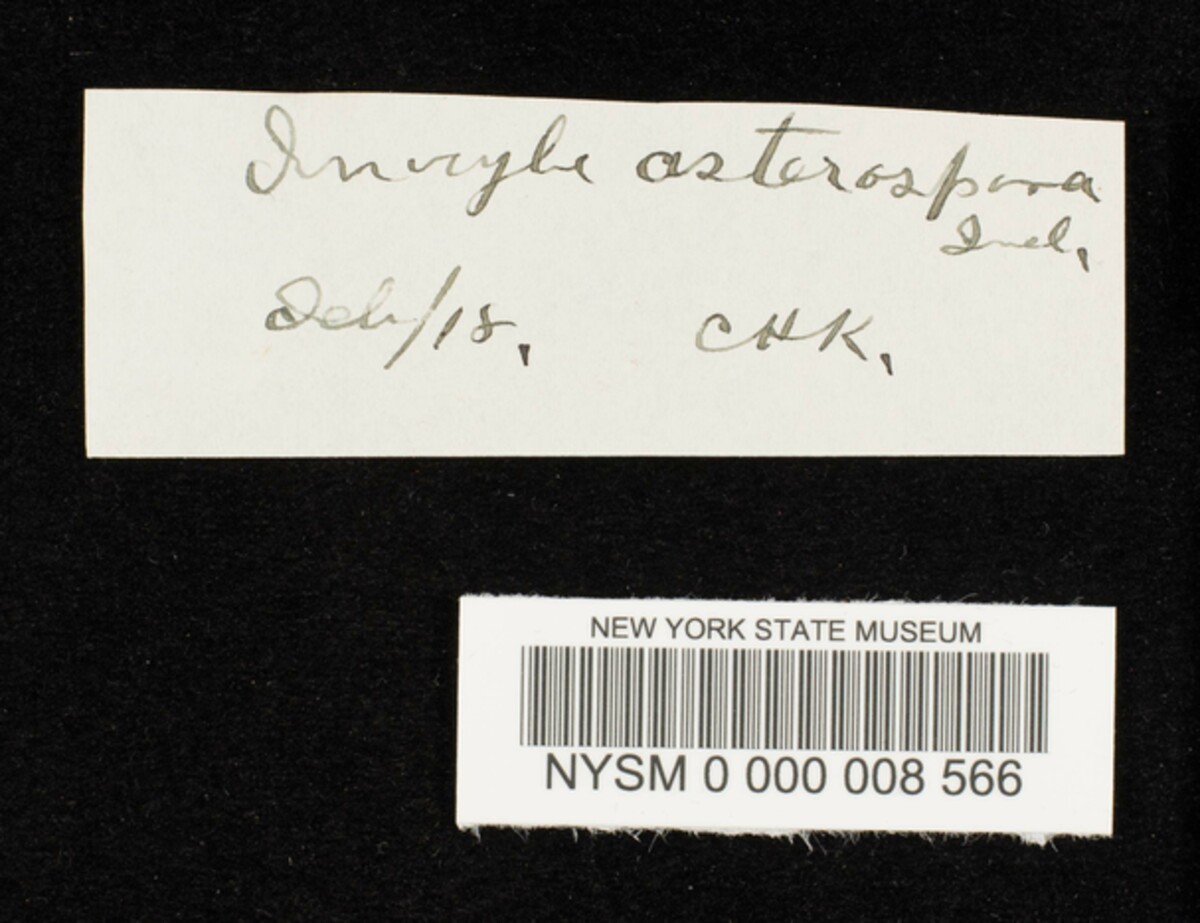 Inocybe asterospora
Quel.
Feb/18.   CHK.
NEW YORK STATE MUSEUM
NYSM 0 000 008 566